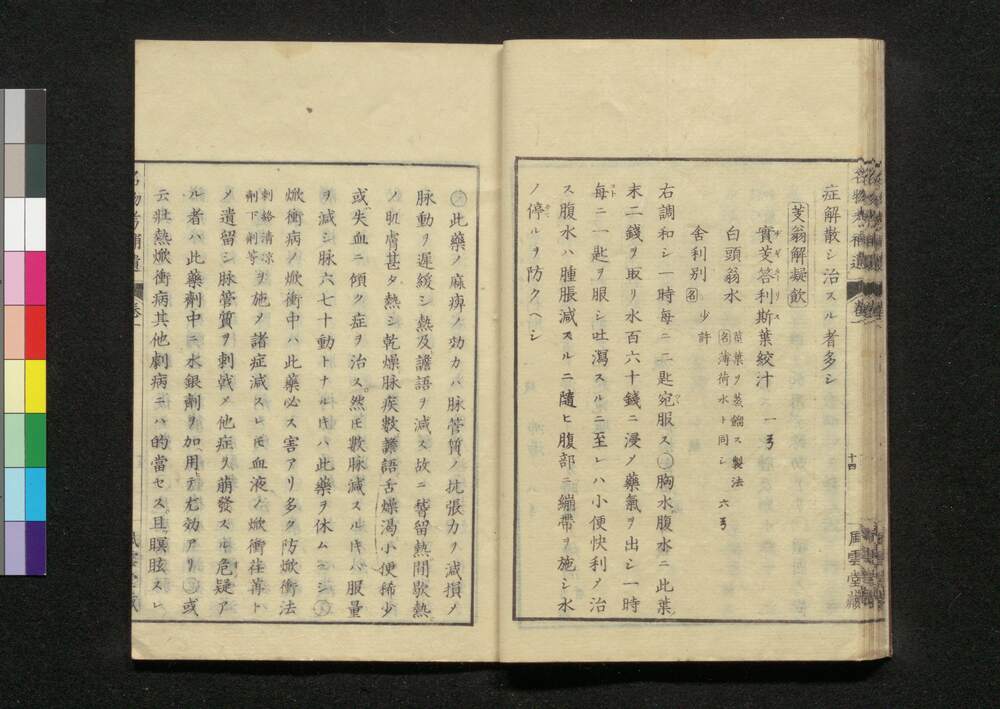 症解散シ治スル者多シ
芰翁解凝飲
實芰答利斯葉絞汁 一弓
ヂギタリス
白頭翁水 草葉ヲ蒸餾ス製法
名薄荷水ト同シ 六弓
舎利別 名 少許
右調和シ一時毎ニ二匙宛服ス〇胸水腹水ニ此葉
末二錢ヲ取リ水百六十錢ニ浸メ藥氣ヲ出シ一時
毎ニ一匙ヲ服シ吐瀉スルニ至レハ小便快利メ治
ス腹水ハ腫脹減スルニ隨ヒ腹部ニ繃帶ヲ施シ水
ノ停ルヲ防クヘシ
十四
風雲堂藏
此藥ノ麻痺ノ効力ハ脉管質ノ抗張力ヲ減損メ
脉動ヲ遅緩シ熱及譫語ヲ減ス故ニ稽留熱間歇熱
ノ肌膚甚タ熱シ乾燥脉疾數譫語舌燥渇小便稀少
或失血ニ傾ク症ヲ治ス然𪜈數脉減スル𪜈ハ服量
ヲ減シ脉六七十動トナル𪜈ハ此藥ヲ休ムヘシ
焮衝病ノ焮衝中ハ此藥必ス害アリ多ク防焮衝法
刺絡清凉
劑下劑等ヲ施メ諸症減スレ𪜈血液ノ焮衝荏苒ト
メ遺留シ脉管質ヲ刺戟メ他症ヲ萠發スル危疑ア
ル者ハ此藥劑中ニ水銀劑ヲ加用テ尤効アリ〇或
云壯熱焮衝病其他劇病ニハ的當セス且瞑眩スレ